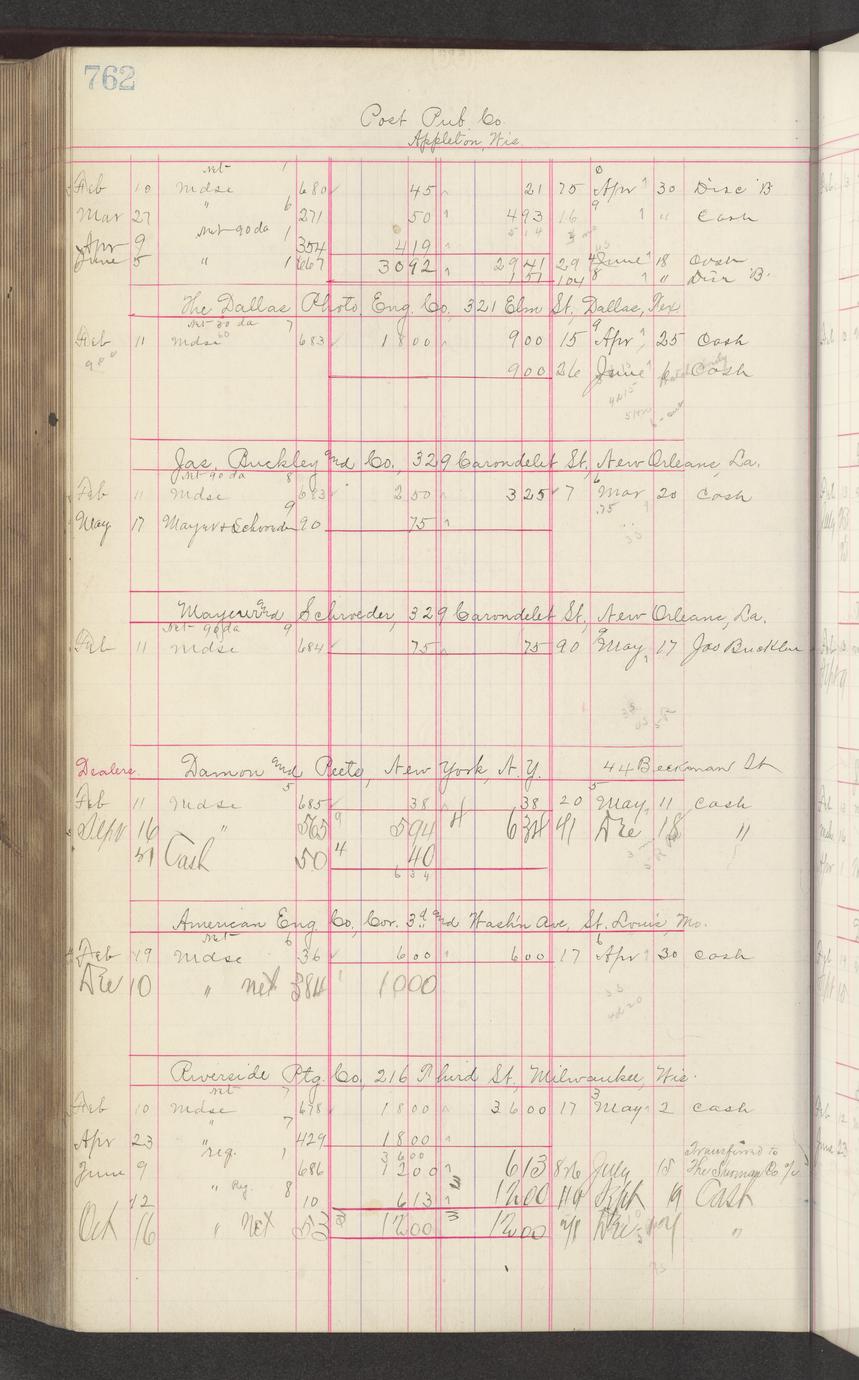 762
Post Pub. Co.
Appleton, Wis.
net 1
Feb 10 Mdse 680 45 21 75 Apr 30 Disc 'B
Mar 27 " 6 271 50 493 16 " Cash
net 90 da 1
Apr 9 354 419
June 5 " 1 667 3092 2941 29 June 18 Cash
151 104 " Disc 'B.
The Dallas Photo. Eng. Co., 321 Elm St., Dallas, Tex.
net 30 da 7
Feb 11 Mdse 683 1800 900 15 Apr 25 Cash
900 26 June 6 Cash
Jas. Buckley and Co., 329 Carondelet St., New Orleans, La.
net 90 da 8
Feb 11 Mdse 683 250 325 7 Mar 20 Cash
May 17 Mayer & Schroeder 90 75
Mayer and Schroeder, 329 Carondelet St., New Orleans, La.
net 90 da 9
Feb 11 Mdse 684 75 75 90 May 17 Jas Buckley
Dealers. Damon and Peets, New York, N.Y. 44 Beekman St
5
Feb 11 Mdse 685 38 38 20 May 11 Cash
Sept 16 " 565 594 634 41 Dec 18 "
Cash 50 40
634
American Eng. Co., Cor. 3d and Wash'n Ave., St. Louis, Mo.
net 6
Feb 19 Mdse 36 600 600 17 Apr 30 Cash
Dec 10 " net 384 1000
Riverside Ptg. Co., 216 Third St., Milwaukee, Wis.
net 7
Feb 10 Mdse 678 1800 3600 17 May 2 Cash
Apr 23 " 7 429 1800
3600 Transferred to
June 9 " reg. 1 686 1200 613 826 July 15 The
12 " Reg. 8 10 613 1200 119 Sept 19 Cash
Oct 16 " Net 53 1200 1200 Dec "